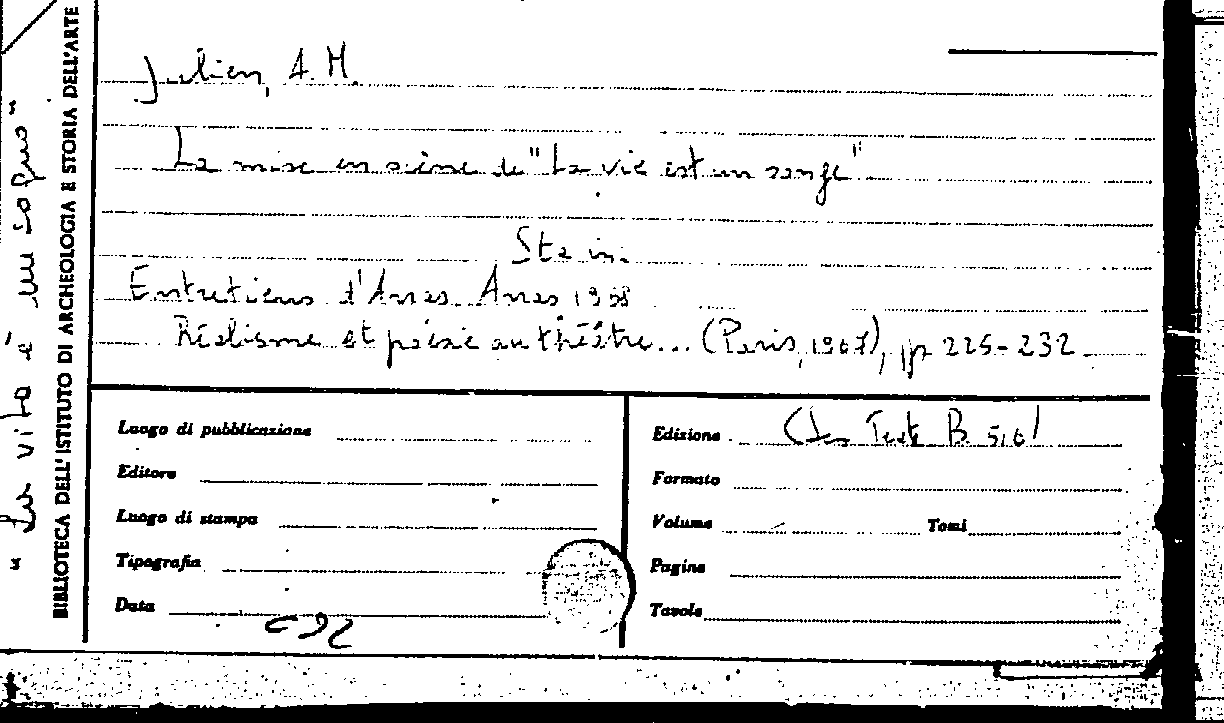 Julien, A. M.
La mise en scène de "La vie est un songe"
Sta in:
Entretiens d'Arras. Arras 1958
Réalisme et poésie au théâtre... (Paris, 1967), pp 225-232
"La vita è un sogno"
BIBLIOTECA DELL'ISTITUTO DI ARCHEOLOGIA E STORIA DELL'ARTE
Luogo di pubblicazione
Editore
Luogo di stampa
Tipografia
Data
Edizione
Formato
Volume Tomi
Pagine
Tavole